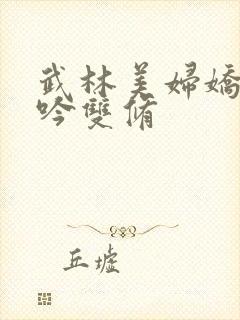 武林美婦嬌
吟雙脩
丘墟